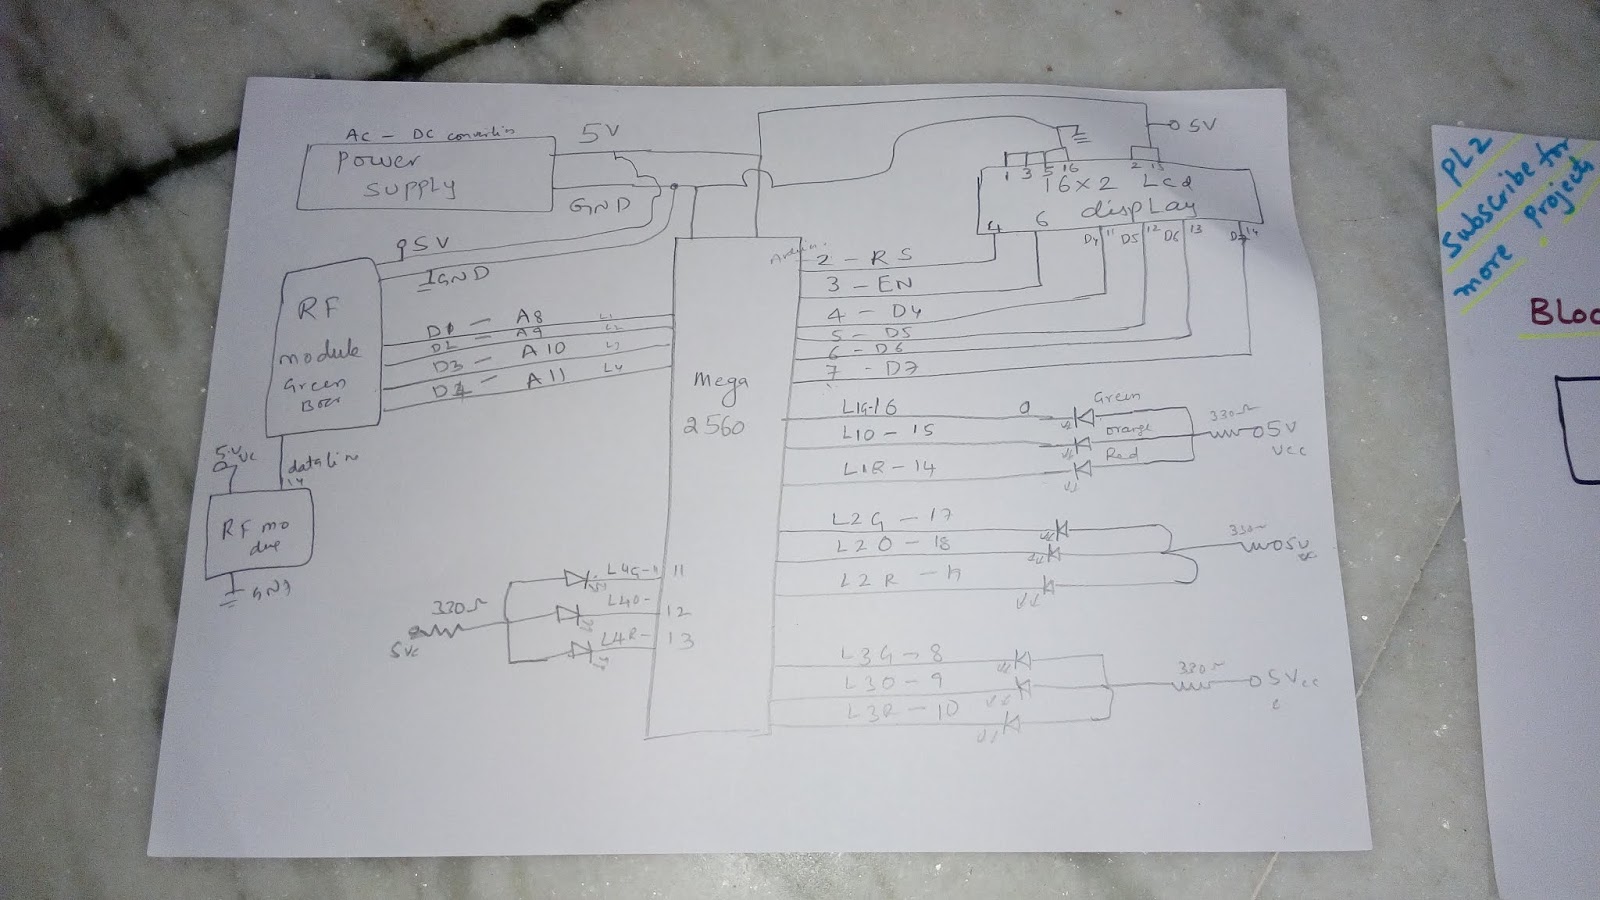 Ac - DC convertin
power
supply
5V
GND
5V
GND
RF
module
Green
Box
D0 - A8 L1
D2 - A9 L2
D3 - A10 L3
D4 - A11 L4
data lin
14
RF mo
due
GND
Mega
2560
5V
1 3 5 16
2 15
16x2 Lcd
display
4 6 D4 11 D5 12 D6 13 D7 14
2 - RS
3 - EN
4 - D4
5 - D5
6 - D6
7 - D7
L1G-16
L1O - 15
L1R - 14
Green
orange
Red
330Ω
5V
vcc
L2G - 17
L2O - 18
L2R -
330
5V
L3G - 8
L3O - 9
L3R - 10
330
5Vcc
330Ω
5Vc
L4G - 11
L4O - 12
L4R - 13
PL2
Subscribe for
more Projects
BLoc